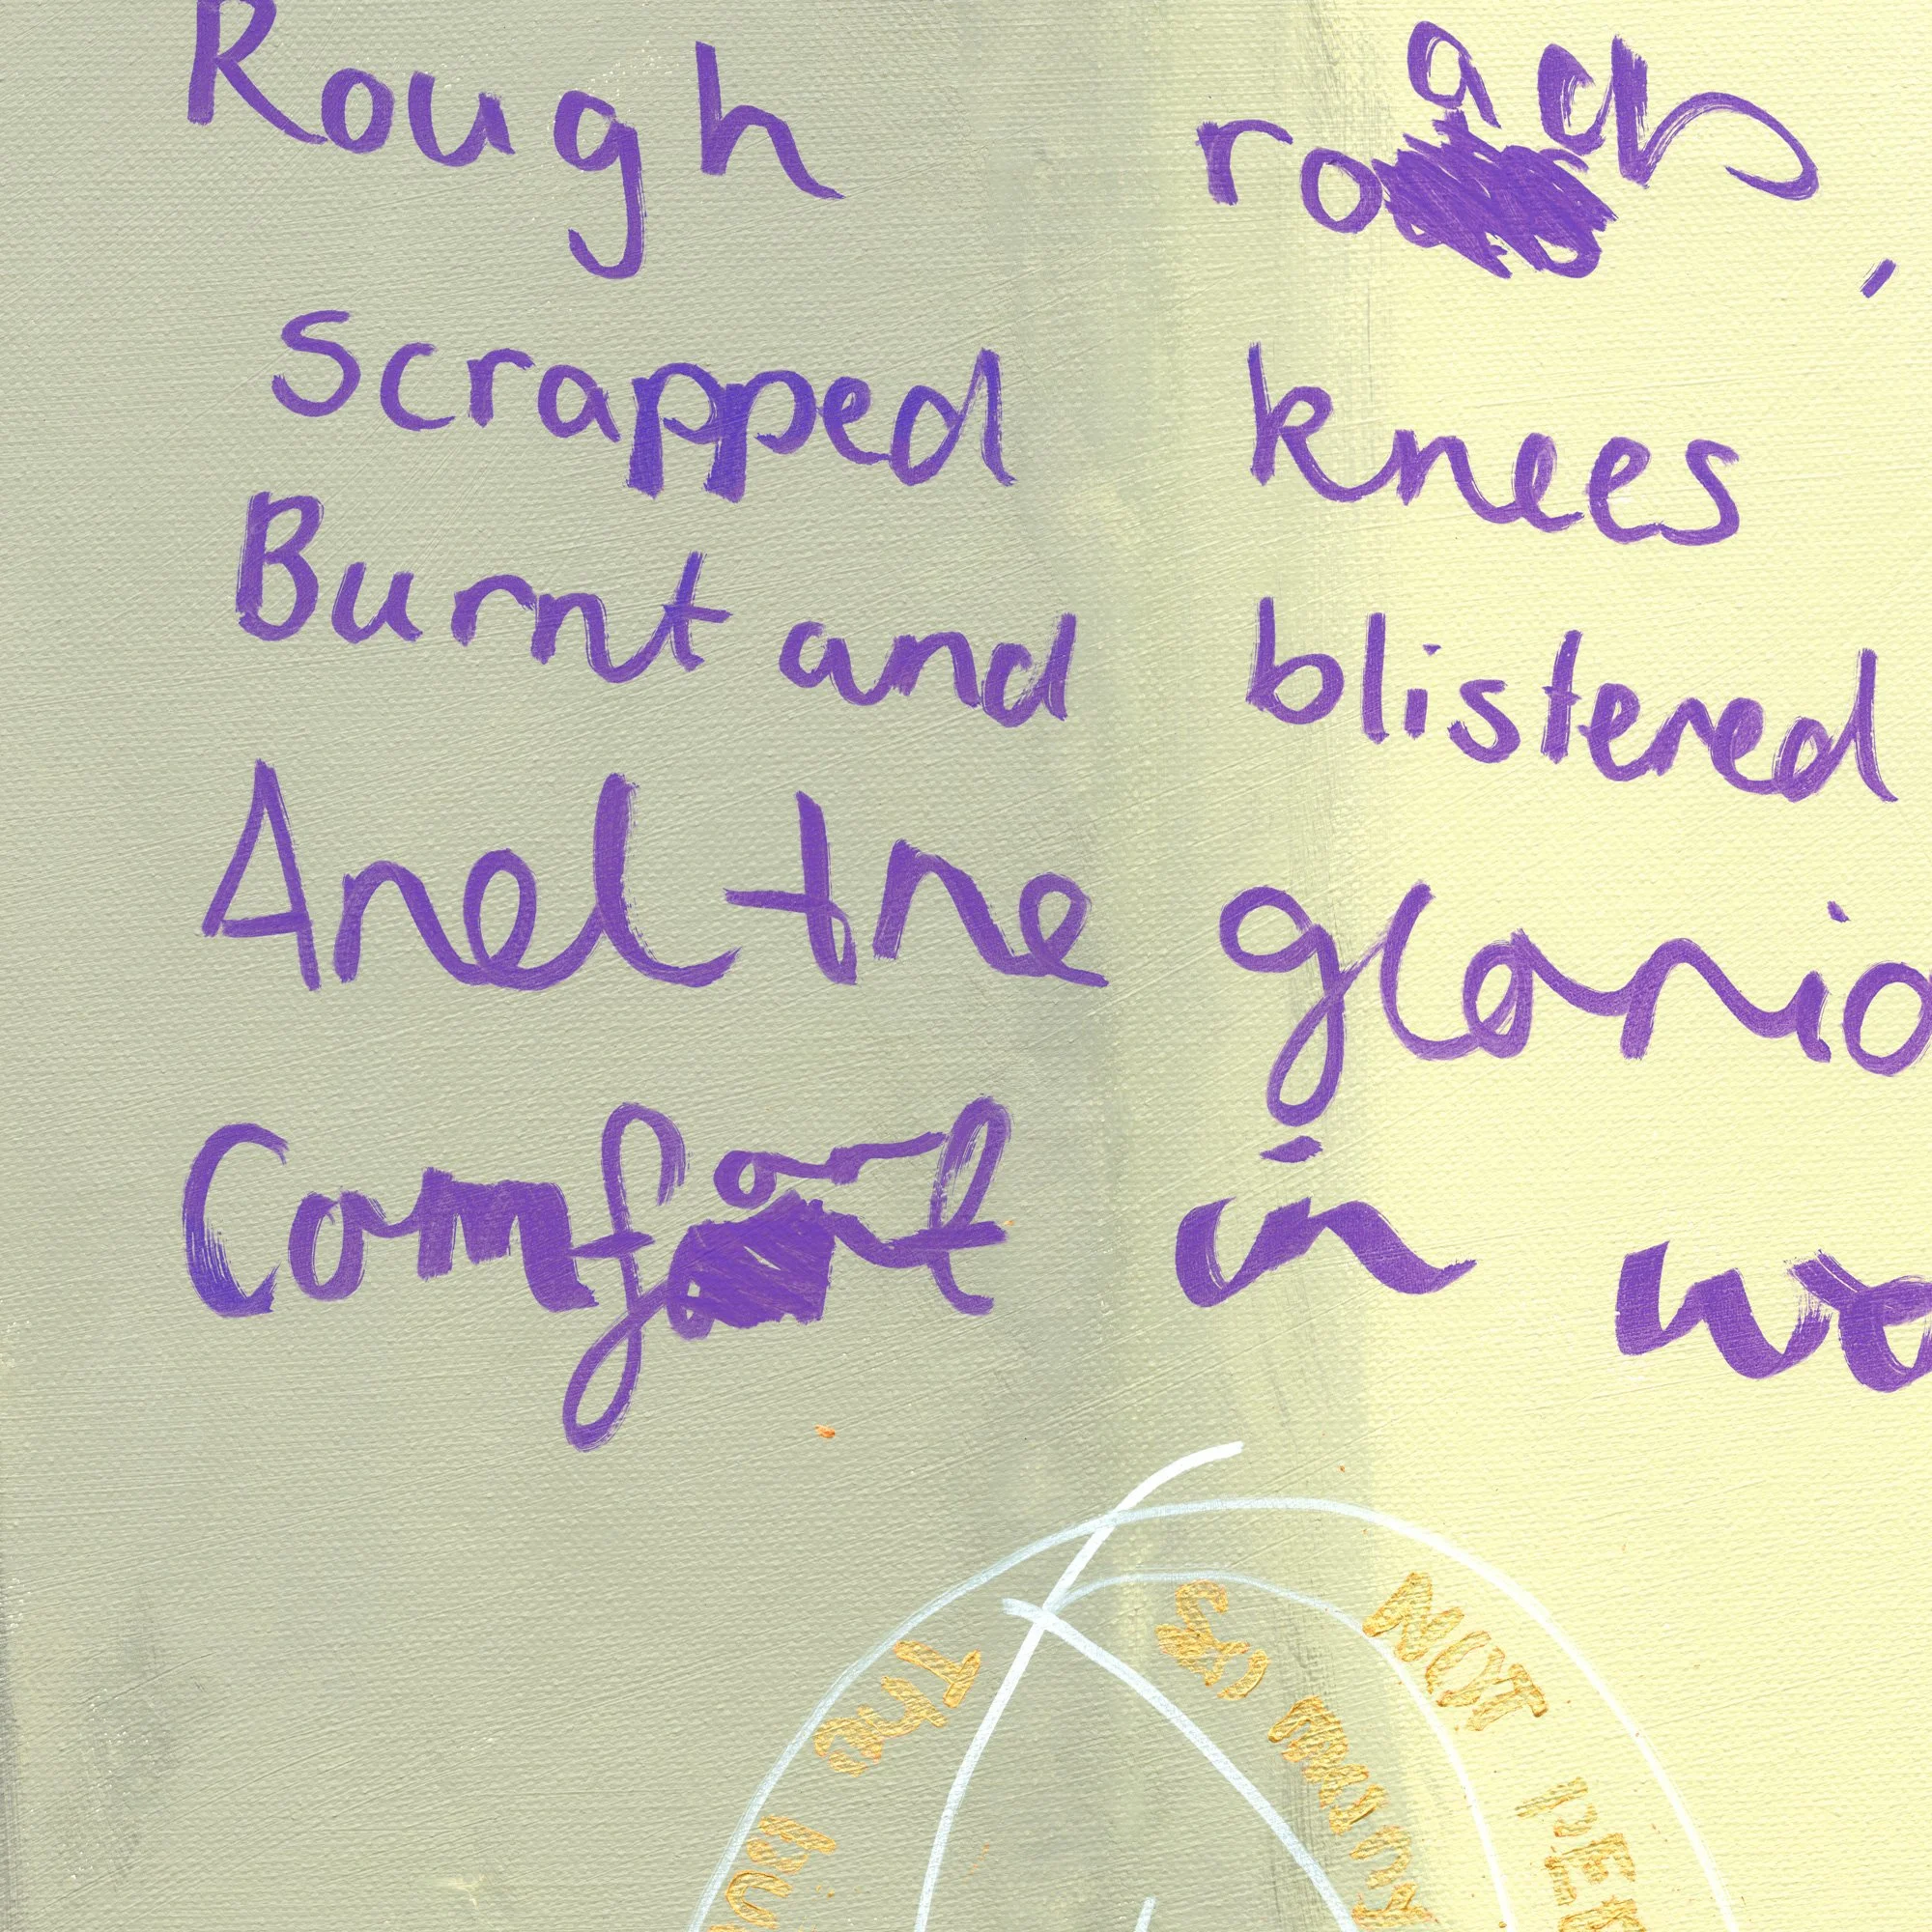 Rough roads,
scrapped knees
Burnt and blistered
And the glorio
Comfort in wo
The
So many
NOT PER